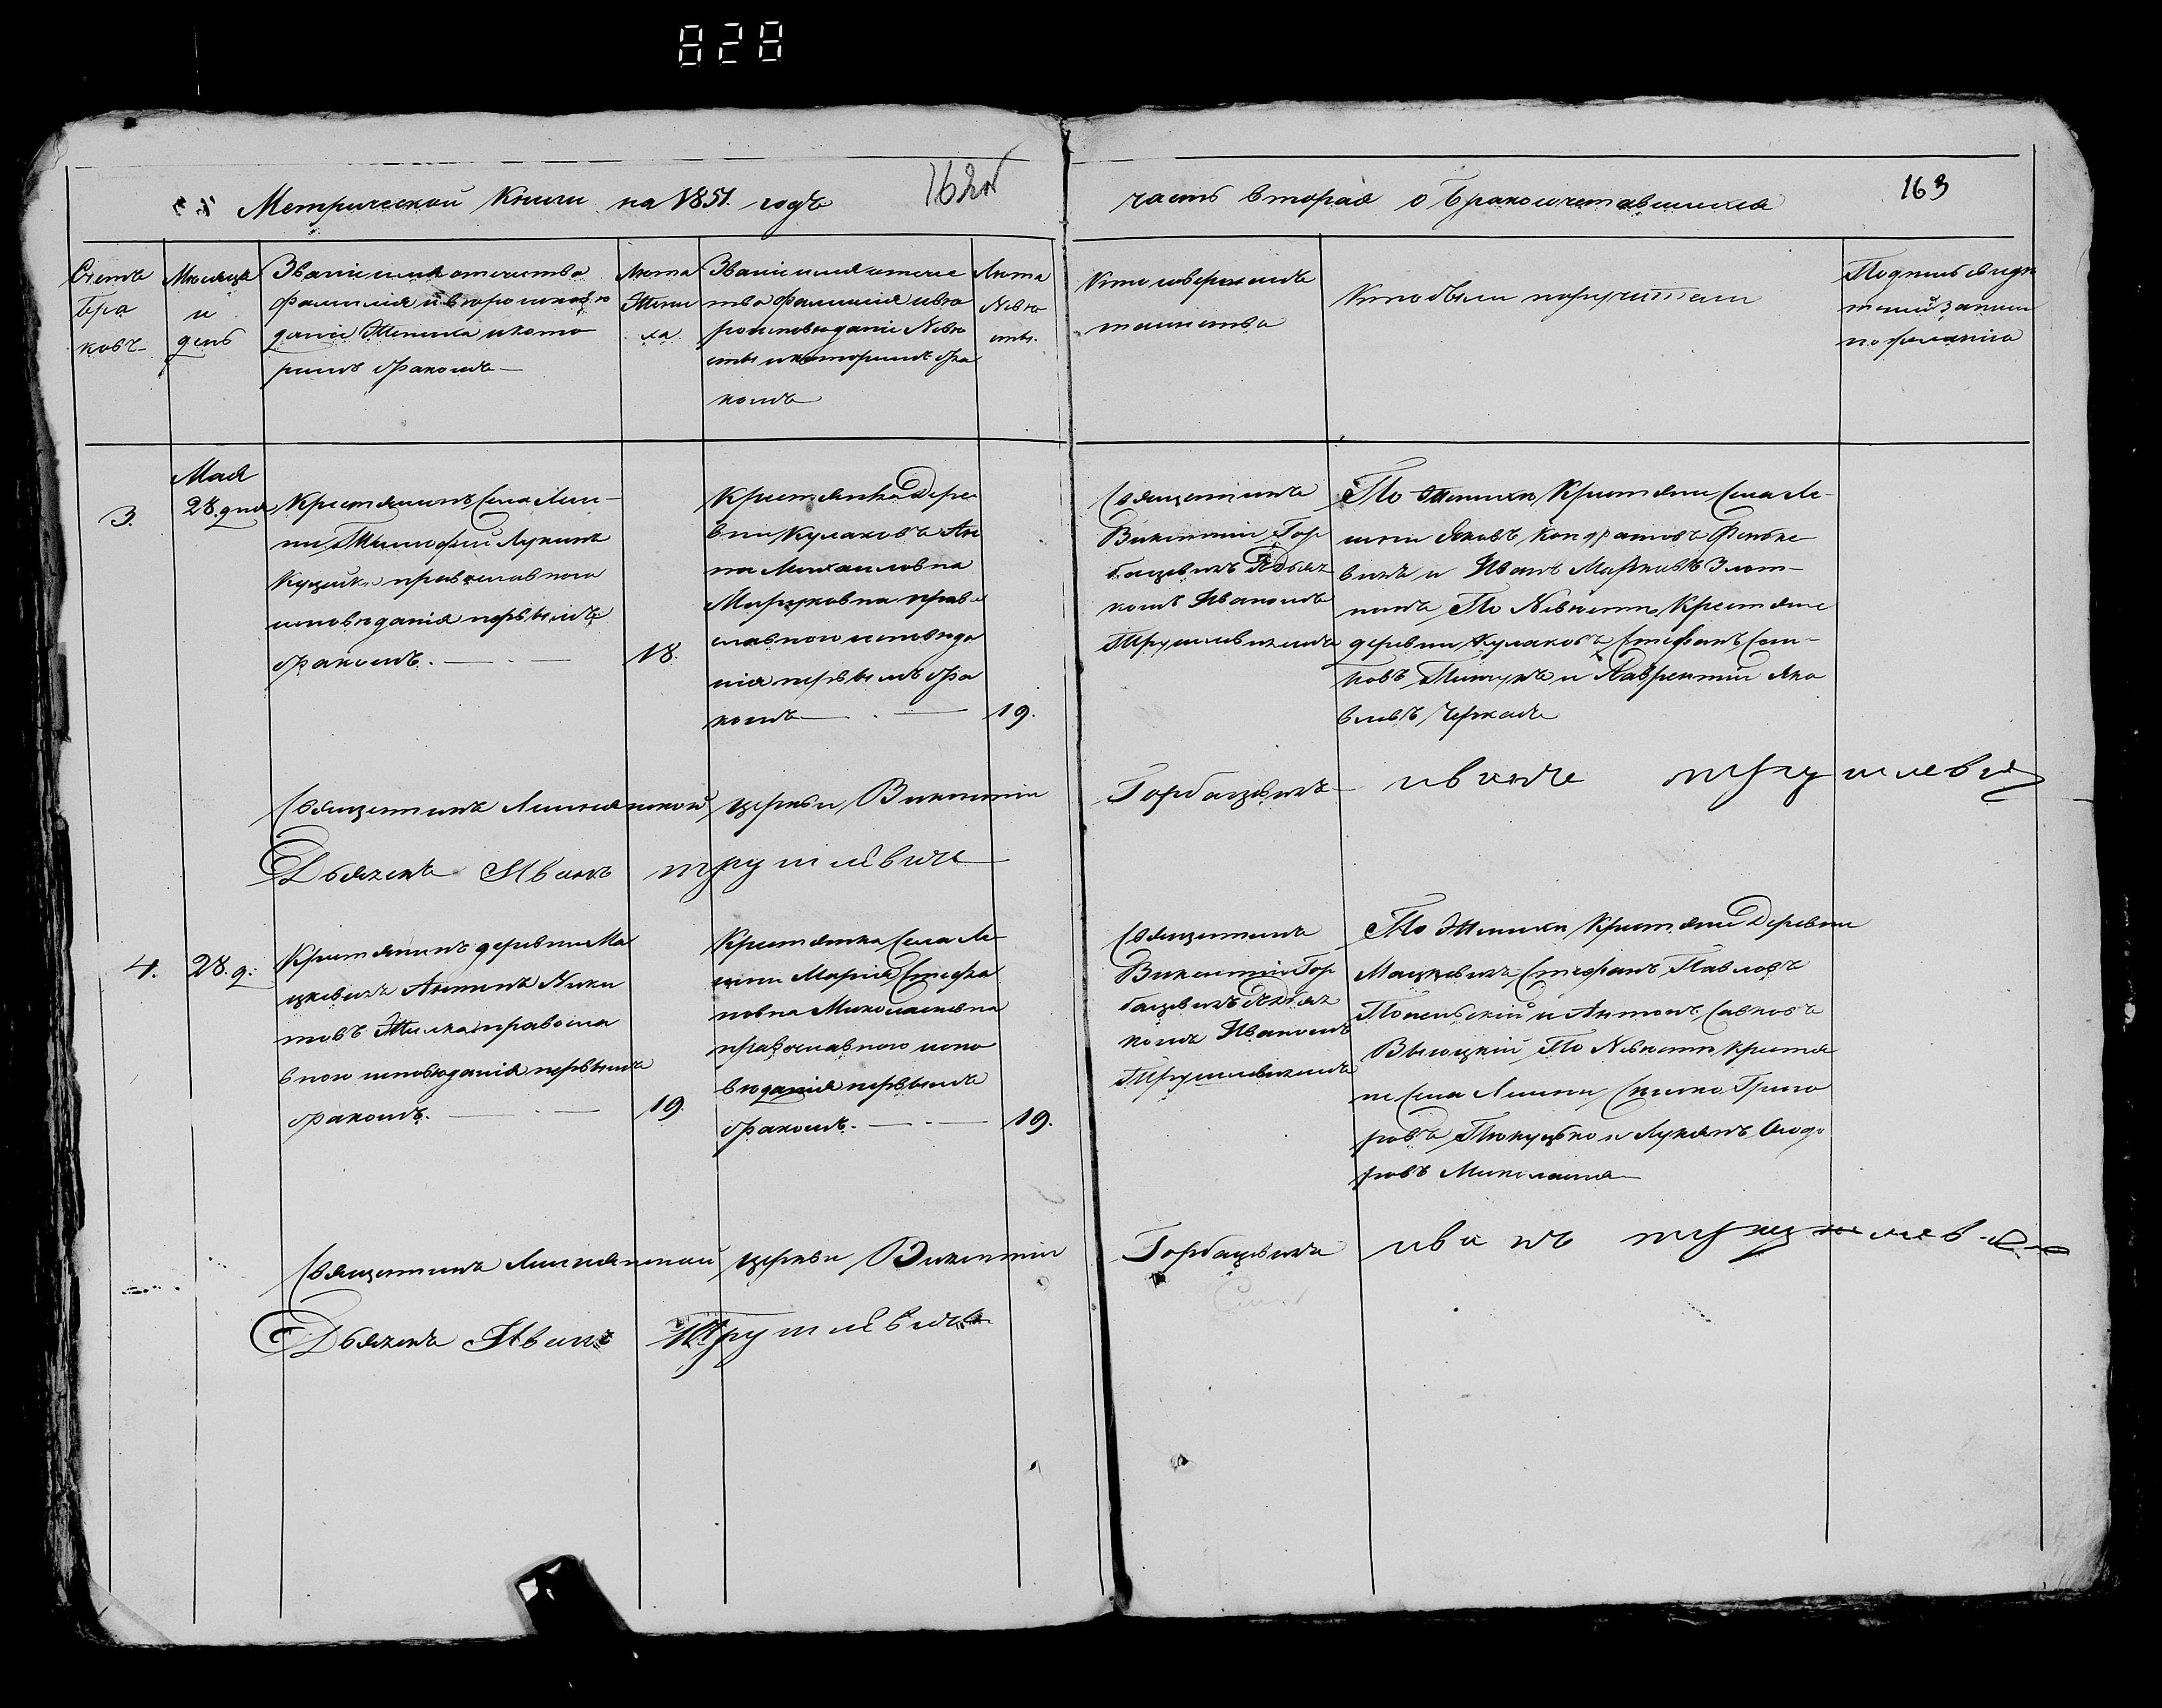 828
Метрической Книги на 1851. годъ
162
часть вторая о бракосочетавшихся
163
Счетъ
бра
ковъ
Мѣсяцъ
и
день
Званіе имя отечество
фамилія и вѣроисповѣ
даніе Жениха и кото
рымъ бракомъ
Лѣта
Жени
ха
Званіе имя отече
ство фамилія и вѣ
роисповѣданіе Невѣ
сты и которымъ бра
комъ
Лѣта
Невѣ
сты.
Кто совершалъ
таинство
Кто были поручители
Подпись свидѣ
телей записи
по желанію
3.
Мая
28. дня
Крестьянинъ Села
Тимофей Лукинъ
православнаго
исповѣданія первымъ
бракомъ.
18.
Крестьянка Дере
вни Кулаковъ Ан
на Михайловна
право
славного исповѣда
нія первымъ бра
комъ
19.
Священникъ
Викентій Гор
бацевичъ съ Дьяч
комъ Иваномъ
Трушевичемъ
По Женихѣ Крестьяне Села
Яковъ Кондратовъ
и Иванъ
По Невѣстѣ Крестьяне
деревни Кулаковъ Стефанъ
и Лаврентій Яко
влевъ Черкасъ
Священникъ церкви Викентій
Горбацевичъ
иванъ трушевич
Дьячекъ Иванъ трушевичъ
4.
28. д.
Крестьянинъ деревни Ма
цкевичъ Антонъ Ники
товъ правосла
вного исповѣданія первымъ
бракомъ.
19.
Крестьянка Села
Марія Стефа
новна
православного испо
вѣданія первымъ
бракомъ.
19.
Священникъ
Викентій Гор
бацевичъ съ Дьяч
комъ Иваномъ
Трушевичемъ
По Женихѣ Крестьяне Деревни
Мацкевичъ Стефанъ Павловъ
и Антонъ Савковъ
Высоцкій По Невѣстѣ крестья
не Села Григо
ровъ и Лукьянъ Ѳеодо
ровъ
Священникъ церкви Викентій
Горбацевичъ
иванъ трушевич
Дьячекъ Иванъ Трушевичъ